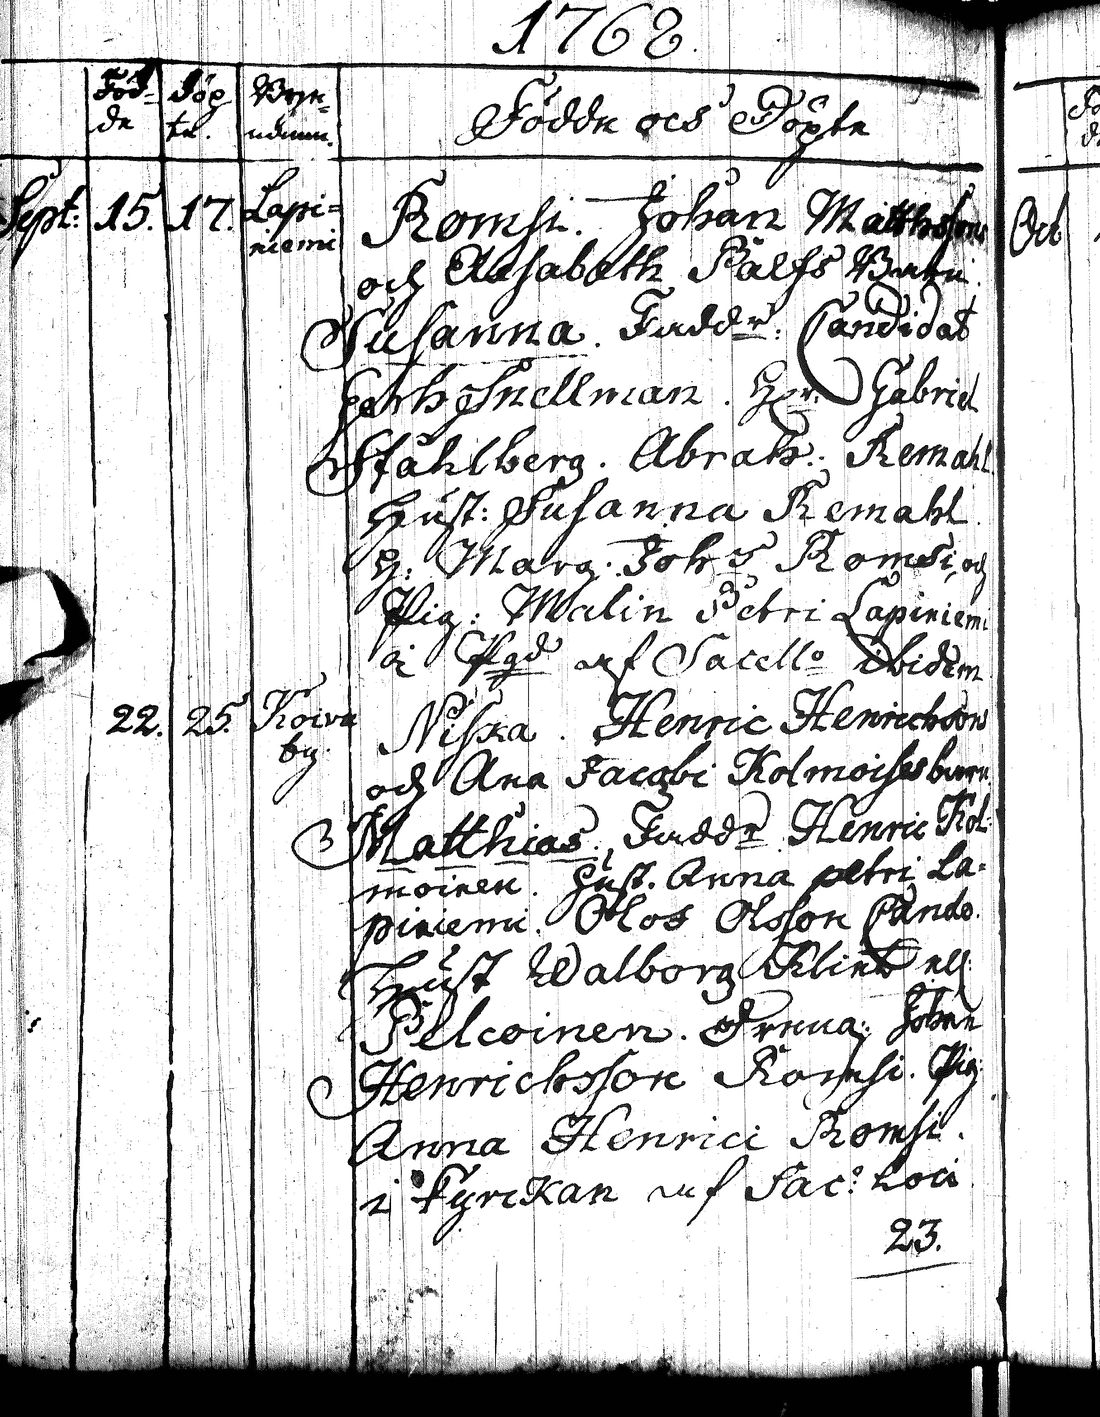 1768.
Föd-
de
Döp
te.
Byn-
Födde och Döpte
Sept: 15. 17. Lapi=
niemi
Romsi. Johan Matthssons
och Elisabeth Pålss Barn
Susanna. Faddr: Candidat
Snellman. Hr: Gabriel
Ståhlberg. Abrah: Remahl
Hust: Susanna Remahl.
H: Marg. Joh:s Romsi, och
Pig: Malin Petri Lapiniemi
af Sacello ibidem
22. 25. Koivu
by.
Niska. Henric Henrichsons
och Ana Jacobi Kolmoises barn
Matthias. Faddr Henric Kol-
moinen. Hust. Anna petri La-
piniemi. Olos Olsson
Hust Walborg
Pelcoinen. Johan
Henrichsson Romsi. Pig:
Anna Henrici Romsi.
i Kyrckan af Sac: Loci
23.
Oct